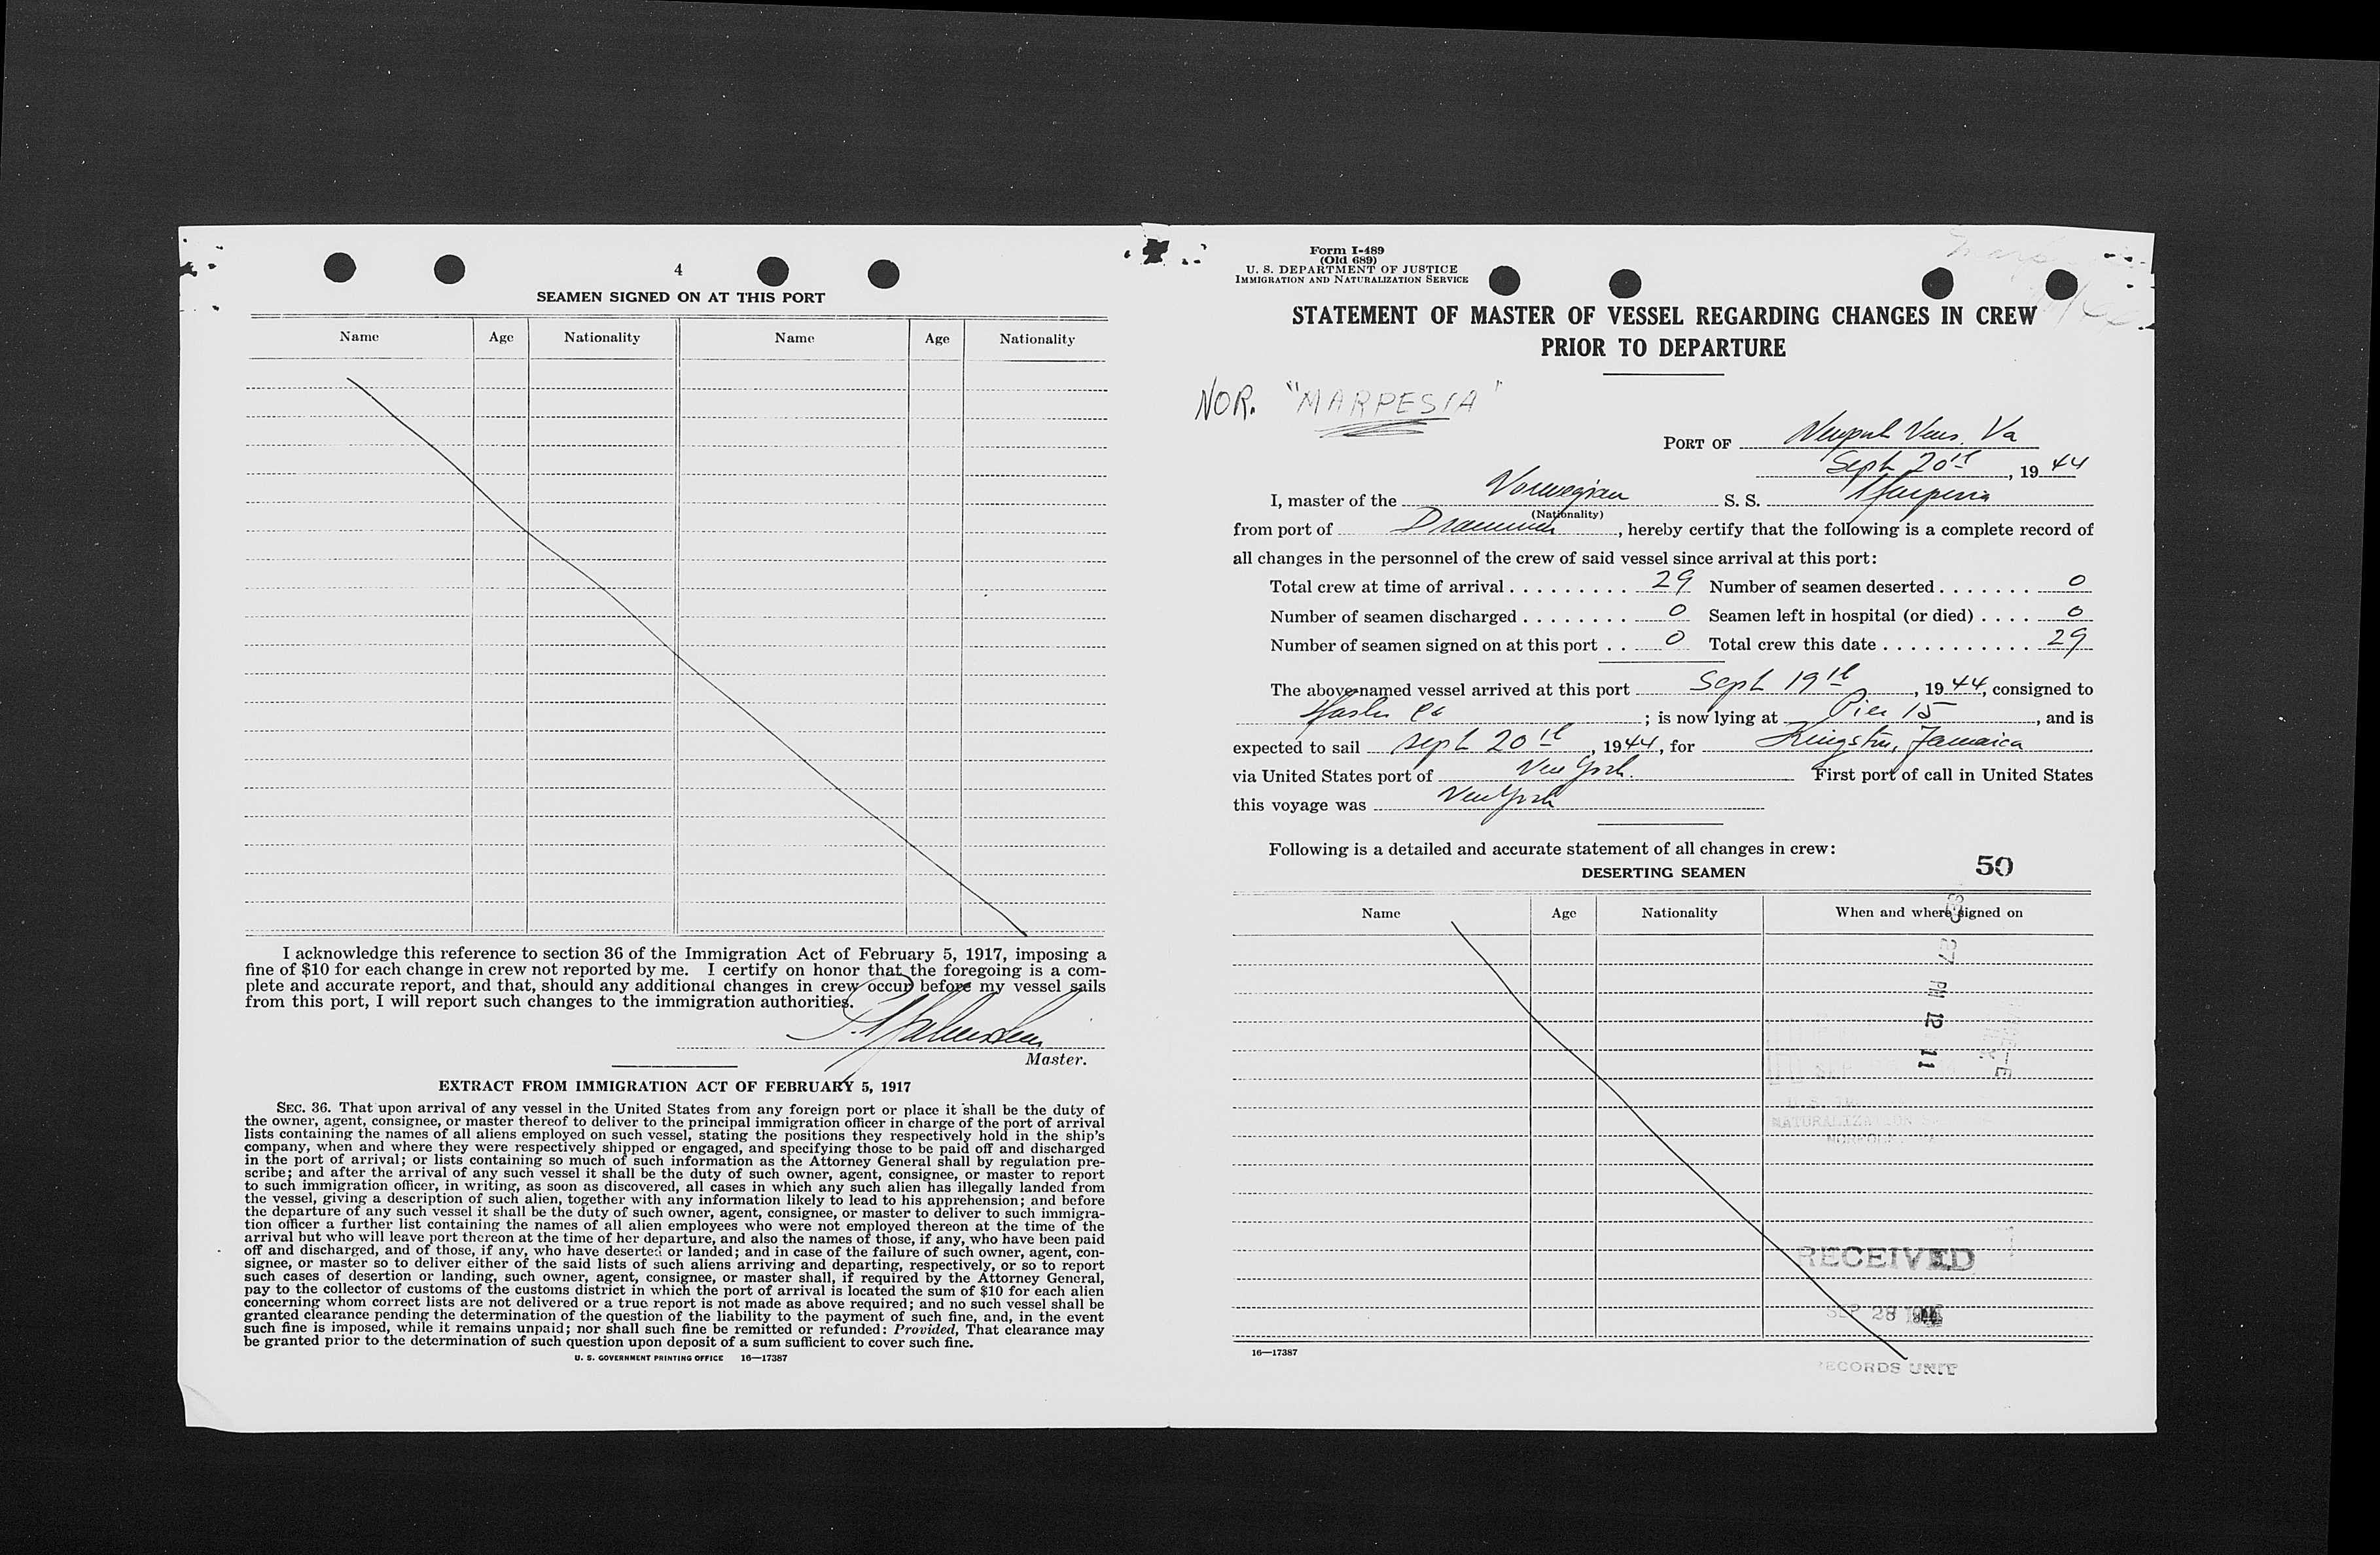 4
SEAMEN SIGNED ON AT THIS PORT
Name Age Nationality Name Age Nationality
I acknowledge this reference to section 36 of the Immigration Act of February 5, 1917, imposing a
fine of $10 for each change in crew not reported by me. I certify on honor that the foregoing is a com-
plete and accurate report, and that, should any additional changes in crew occur before my vessel sails
from this port, I will report such changes to the immigration authorities.
Master.
EXTRACT FROM IMMIGRATION ACT OF FEBRUARY 5, 1917
SEC. 36. That upon arrival of any vessel in the United States from any foreign port or place it shall be the duty of
the owner, agent, consignee, or master thereof to deliver to the principal immigration officer in charge of the port of arrival
lists containing the names of all aliens employed on such vessel, stating the positions they respectively hold in the ship's
company, when and where they were respectively shipped or engaged, and specifying those to be paid off and discharged
in the port of arrival; or lists containing so much of such information as the Attorney General shall by regulation pre-
scribe; and after the arrival of any such vessel it shall be the duty of such owner, agent, consignee, or master to report
to such immigration officer, in writing, as soon as discovered, all cases in which any such alien has illegally landed from
the vessel, giving a description of such alien, together with any information likely to lead to his apprehension; and before
the departure of any such vessel it shall be the duty of such owner, agent, consignee, or master to deliver to such immigra-
tion officer a further list containing the names of all alien employees who were not employed thereon at the time of the
arrival but who will leave port thereon at the time of her departure, and also the names of those, if any, who have been paid
off and discharged, and of those, if any, who have deserted or landed; and in case of the failure of such owner, agent, con-
signee, or master so to deliver either of the said lists of such aliens arriving and departing, respectively, or so to report
such cases of desertion or landing, such owner, agent, consignee, or master shall, if required by the Attorney General,
pay to the collector of customs of the customs district in which the port of arrival is located the sum of $10 for each alien
concerning whom correct lists are not delivered or a true report is not made as above required; and no such vessel shall be
granted clearance pending the determination of the question of the liability to the payment of such fine, and, in the event
such fine is imposed, while it remains unpaid; nor shall such fine be remitted or refunded: Provided, That clearance may
be granted prior to the determination of such question upon deposit of a sum sufficient to cover such fine.
U. S. GOVERNMENT PRINTING OFFICE 16—17387
Form I-489
(Old 689)
U. S. DEPARTMENT OF JUSTICE
IMMIGRATION AND NATURALIZATION SERVICE
STATEMENT OF MASTER OF VESSEL REGARDING CHANGES IN CREW
PRIOR TO DEPARTURE
NOR. "MARPESIA"
PORT OF Newport News. Va
Sept 20th, 1944
I, master of the Norwegian S. S. Marpesia
(Nationality)
from port of Drammen, hereby certify that the following is a complete record of
all changes in the personnel of the crew of said vessel since arrival at this port:
Total crew at time of arrival . . . . . . . . . 29 Number of seamen deserted . . . . . . . 0
Number of seamen discharged . . . . . . . . 0 Seamen left in hospital (or died) . . . . 0
Number of seamen signed on at this port . . 0 Total crew this date . . . . . . . . . . . 29
The above-named vessel arrived at this port Sept 19th, 1944, consigned to
; is now lying at Pier 15, and is
expected to sail Sept 20th, 1944, for Kingston, Jamaica
via United States port of New York. First port of call in United States
this voyage was New York
Following is a detailed and accurate statement of all changes in crew:
50
DESERTING SEAMEN
Name Age Nationality When and where signed on
27 PM 12 11
NATURALIZATION
NORFOLK
RECEIVED
SEP 28
RECORDS UNIT
16—17387